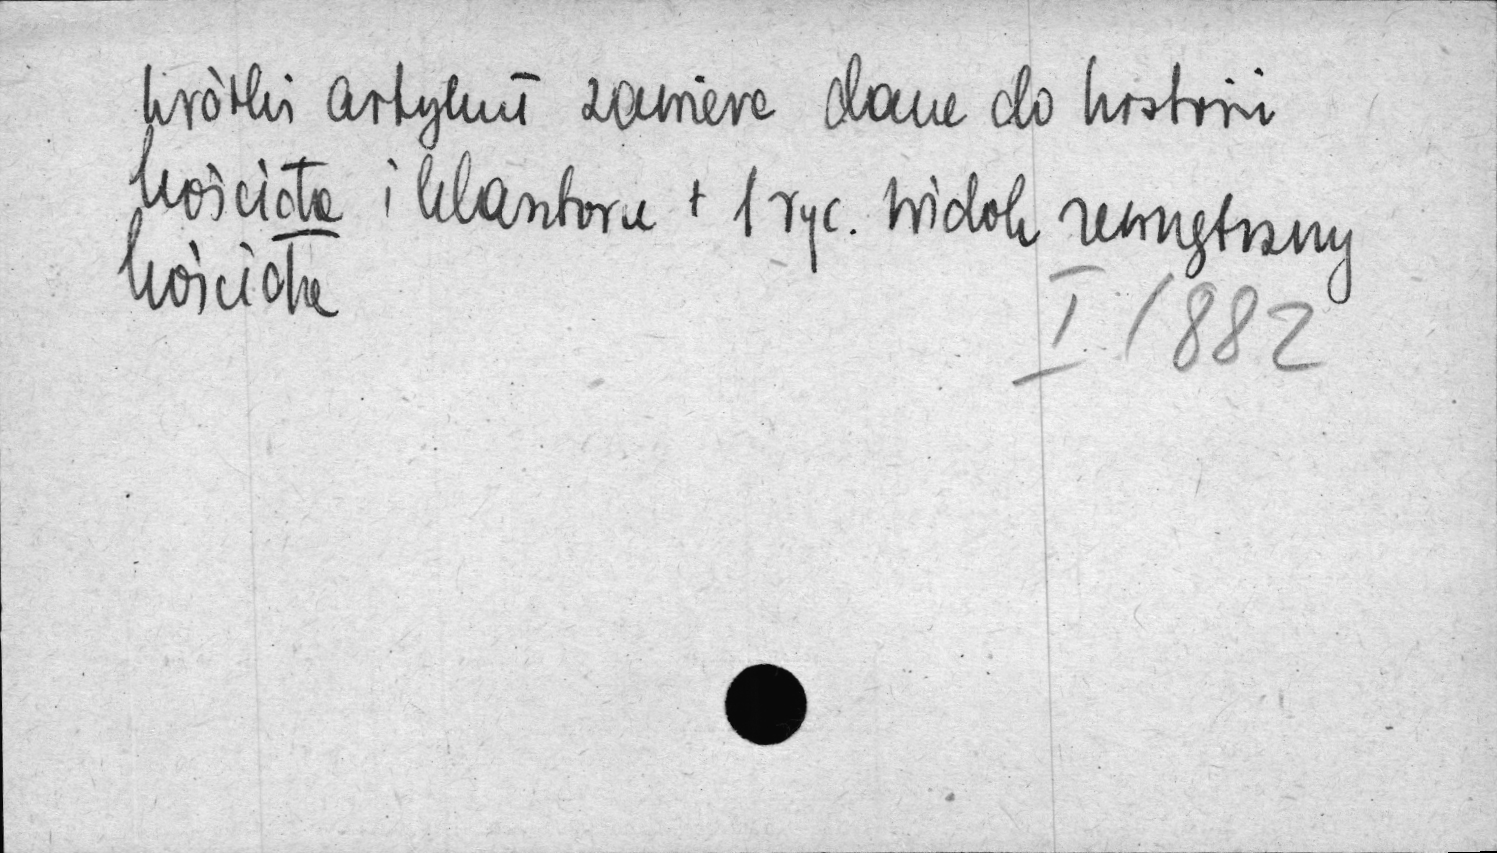 krótki artykuł zawiera dane do historii
kościoła i klasztoru + 1 ryc. widok zewnętrzny
kościoła
I / 882